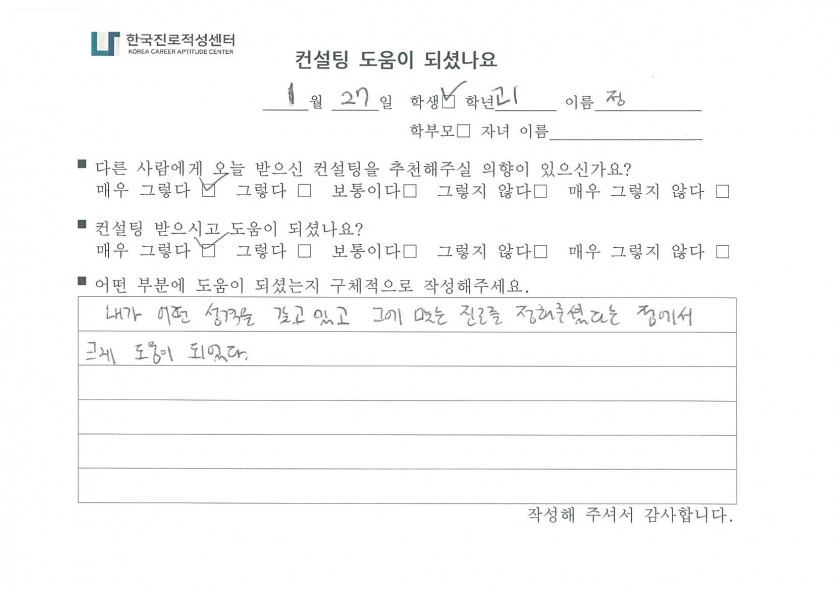 한국진로적성센터
KOREA CAREER APTITUDE CENTER
컨설팅 도움이 되셨나요
1월 27일 학생☑ 학년 고1 이름 정
학부모□ 자녀 이름
■ 다른 사람에게 오늘 받으신 컨설팅을 추천해주실 의향이 있으신가요?
매우 그렇다 ☑ 그렇다 □ 보통이다□ 그렇지 않다□ 매우 그렇지 않다 □
■ 컨설팅 받으시고 도움이 되셨나요?
매우 그렇다 ☑ 그렇다 □ 보통이다□ 그렇지 않다□ 매우 그렇지 않다 □
■ 어떤 부분에 도움이 되셨는지 구체적으로 작성해주세요.
내가 어떤 성격을 갖고 있고 그에 맞는 진로를 정해주셨다는 점에서
크게 도움이 되었다.
작성해 주셔서 감사합니다.